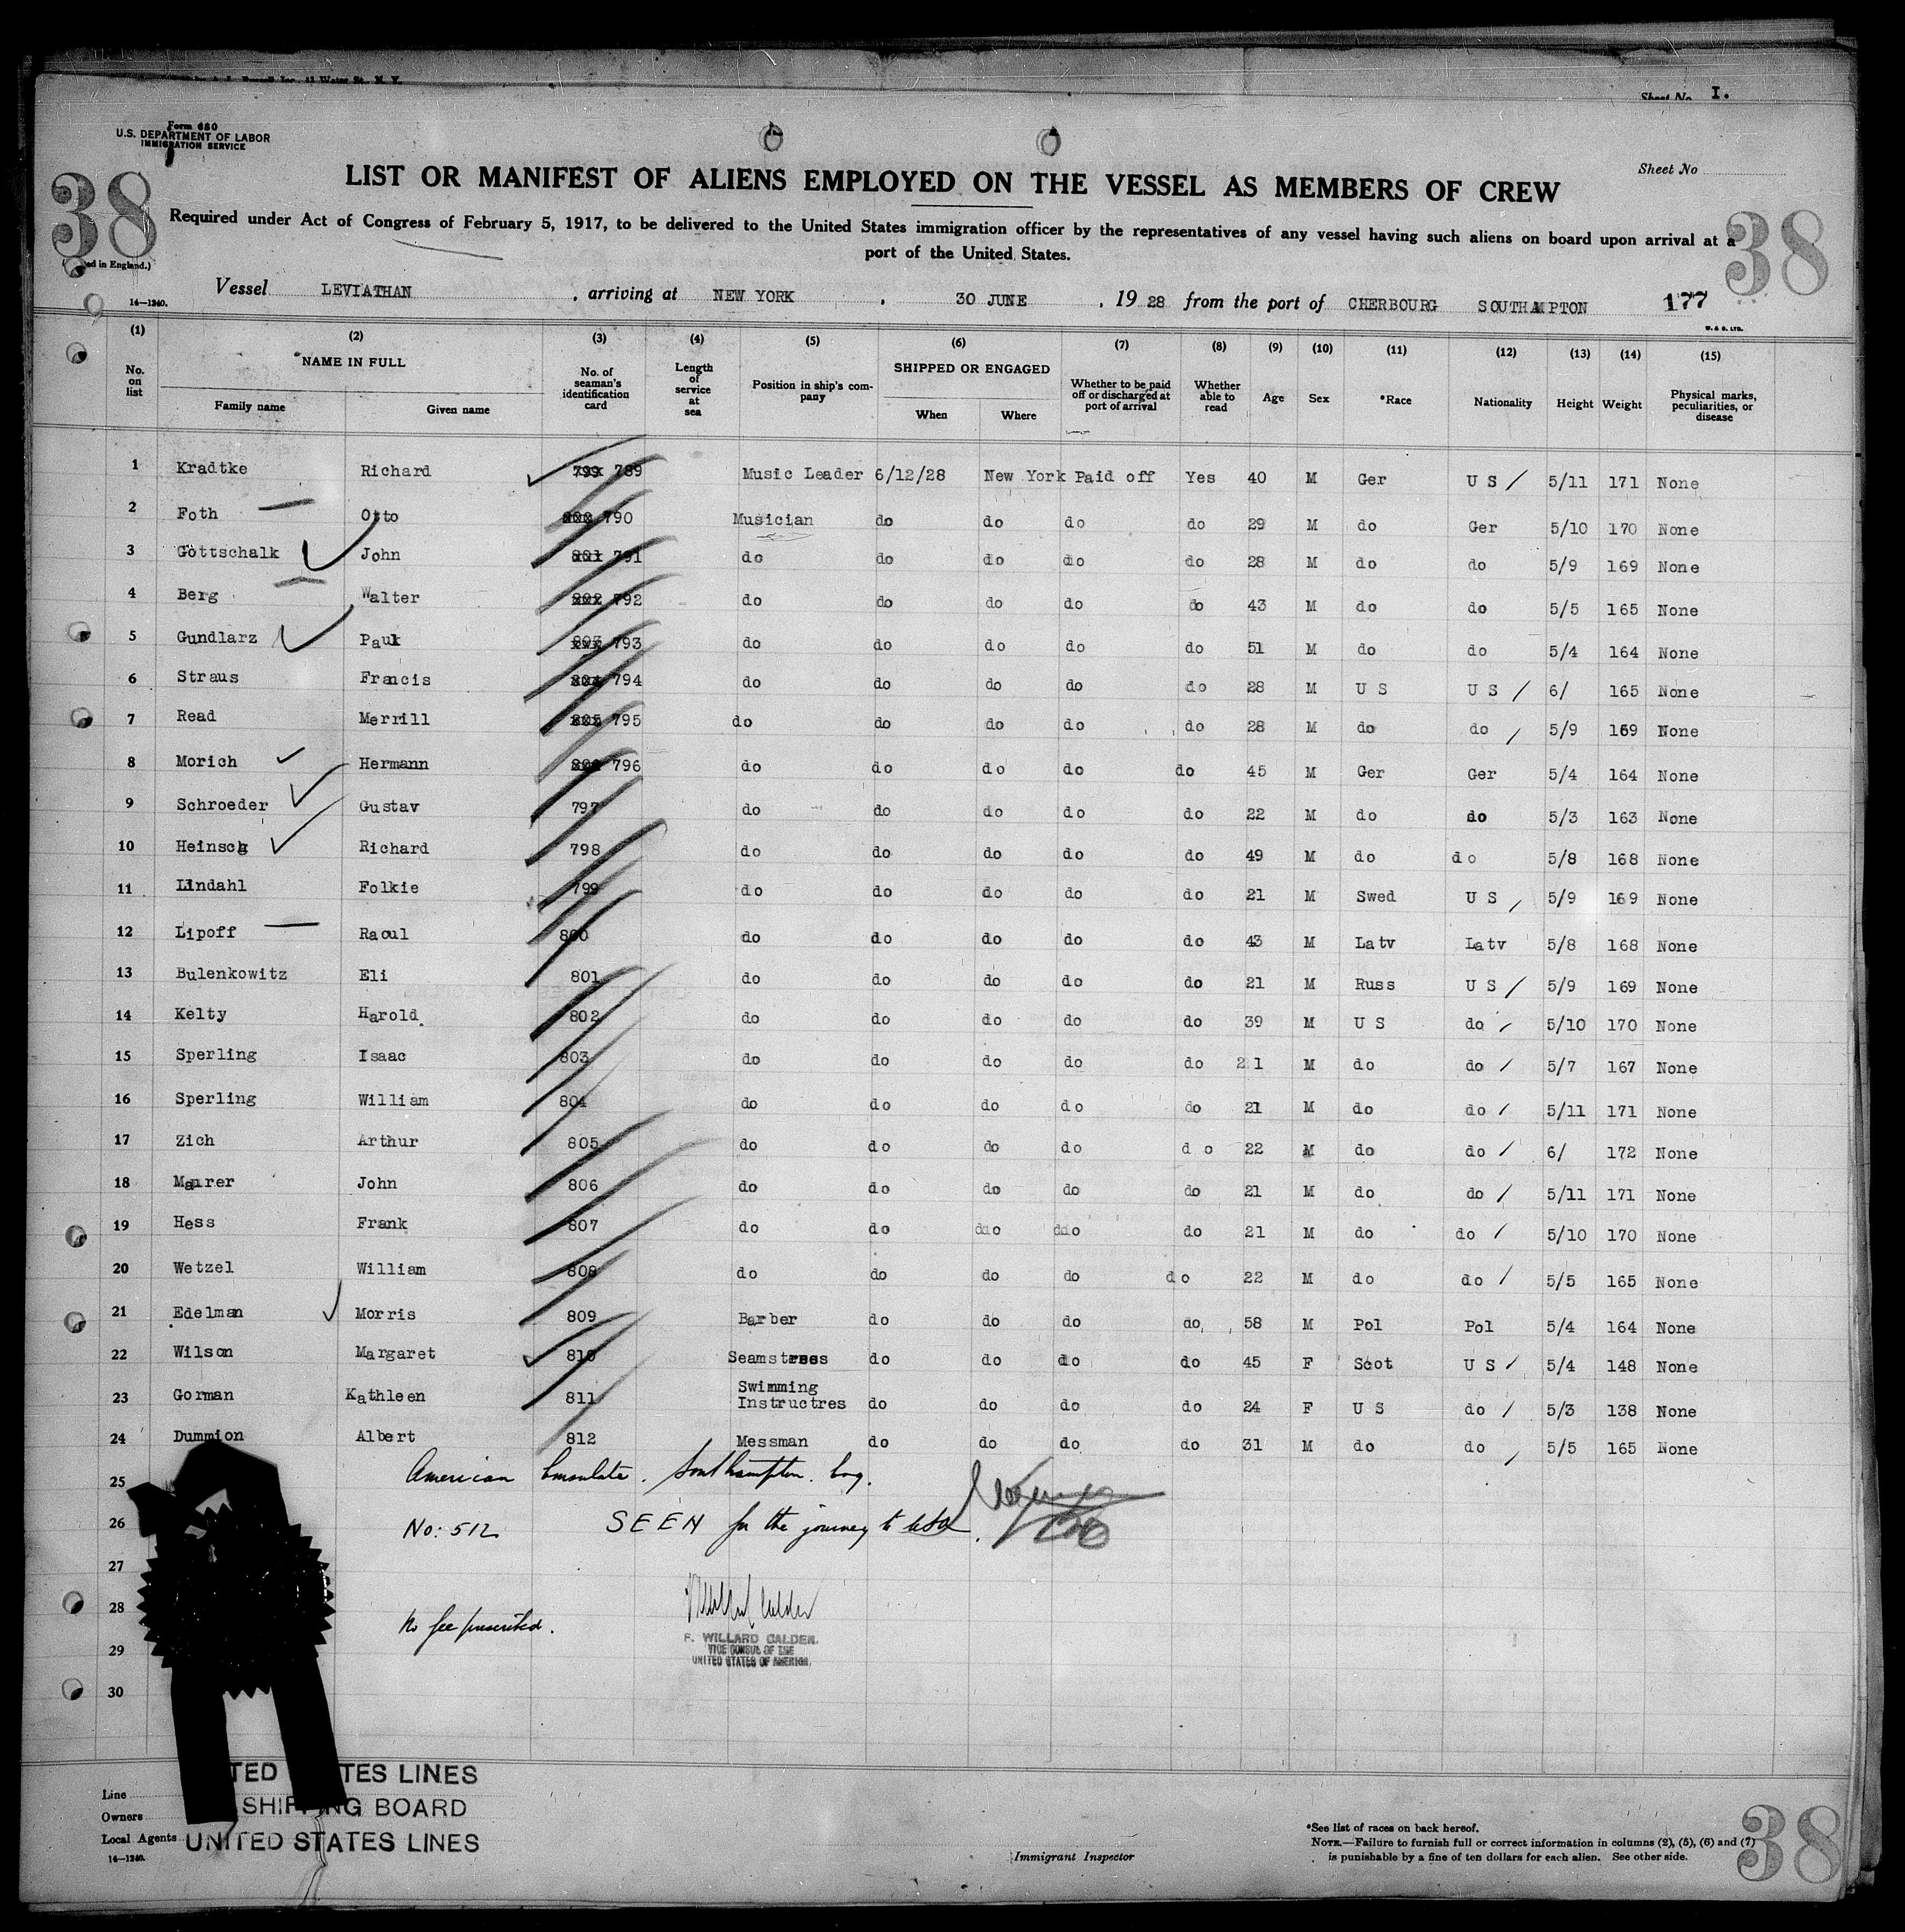 Sheet No I.
Form 680
U.S. DEPARTMENT OF LABOR
IMMIGRATION SERVICE
Sheet No
38
38
LIST OR MANIFEST OF ALIENS EMPLOYED ON THE VESSEL AS MEMBERS OF CREW
Required under Act of Congress of February 5, 1917, to be delivered to the United States immigration officer by the representatives of any vessel having such aliens on board upon arrival at a
port of the United States.
ed in England.)
14—1240.
Vessel LEVIATHAN , arriving at NEW YORK , 30 JUNE , 19 28 from the port of CHERBOURG SOUTHAMPTON 177
W. & S. LTD.
(1) (2) (3) (4) (5) (6) (7) (8) (9) (10) (11) (12) (13) (14) (15)
No. on list NAME IN FULL Family name Given name No. of seaman's identification card Length of service at sea Position in ship's company SHIPPED OR ENGAGED When Where Whether to be paid off or discharged at port of arrival Whether able to read Age Sex *Race Nationality Height Weight Physical marks, peculiarities, or disease
1 Kradtke Richard 799 789 Music Leader 6/12/28 New York Paid off Yes 40 M Ger U S / 5/11 171 None
2 Foth Otto 790 Musician do do do do 29 M do Ger 5/10 170 None
3 Gottschalk John 801 791 do do do do do 28 M do do 5/9 169 None
4 Berg Walter 802 792 do do do do do 43 M do do 5/5 165 None
5 Gundlarz Paul 803 793 do do do do do 51 M do do 5/4 164 None
6 Straus Francis 804 794 do do do do do 28 M U S U S / 6/ 165 None
7 Read Merrill 805 795 do do do do do 28 M do do / 5/9 169 None
8 Morich Hermann 796 do do do do do 45 M Ger Ger 5/4 164 None
9 Schroeder Gustav 797 do do do do do 22 M do do 5/3 163 None
10 Heinsch Richard 798 do do do do do 49 M do do 5/8 168 None
11 Lindahl Folkie 799 do do do do do 21 M Swed U S / 5/9 169 None
12 Lipoff Raoul 800 do do do do do 43 M Latv Latv 5/8 168 None
13 Bulenkowitz Eli 801 do do do do do 21 M Russ U S / 5/9 169 None
14 Kelty Harold 802 do do do do do 39 M U S do / 5/10 170 None
15 Sperling Isaac 803 do do do do do 21 M do do / 5/7 167 None
16 Sperling William 804 do do do do do 21 M do do / 5/11 171 None
17 Zich Arthur 805 do do do do do 22 M do do / 6/ 172 None
18 Maurer John 806 do do do do do 21 M do do / 5/11 171 None
19 Hess Frank 807 do do do do do 21 M do do / 5/10 170 None
20 Wetzel William 808 do do do do do 22 M do do / 5/5 165 None
21 Edelman Morris 809 Barber do do do do 58 M Pol Pol 5/4 164 None
22 Wilson Margaret 810 Seamstress do do do do 45 F Scot U S / 5/4 148 None
23 Gorman Kathleen 811 Swimming Instructres do do do do 24 F U S do / 5/3 138 None
24 Dummion Albert 812 Messman do do do do 31 M do do / 5/5 165 None
25 American Consulate. Southampton. Eng.
26 No: 512 SEEN for the journey to USA.
27
28 No fee prescribed.
F. WILLARD CALDER.
29 VICE CONSUL OF THE
UNITED STATES OF AMERICA.
30
Line TED TES LINES
Owners SHIPPING BOARD
Local Agents UNITED STATES LINES
14—1240.
Immigrant Inspector
*See list of races on back hereof.
NOTE.—Failure to furnish full or correct information in columns (2), (5), (6) and (7)
is punishable by a fine of ten dollars for each alien. See other side.
38